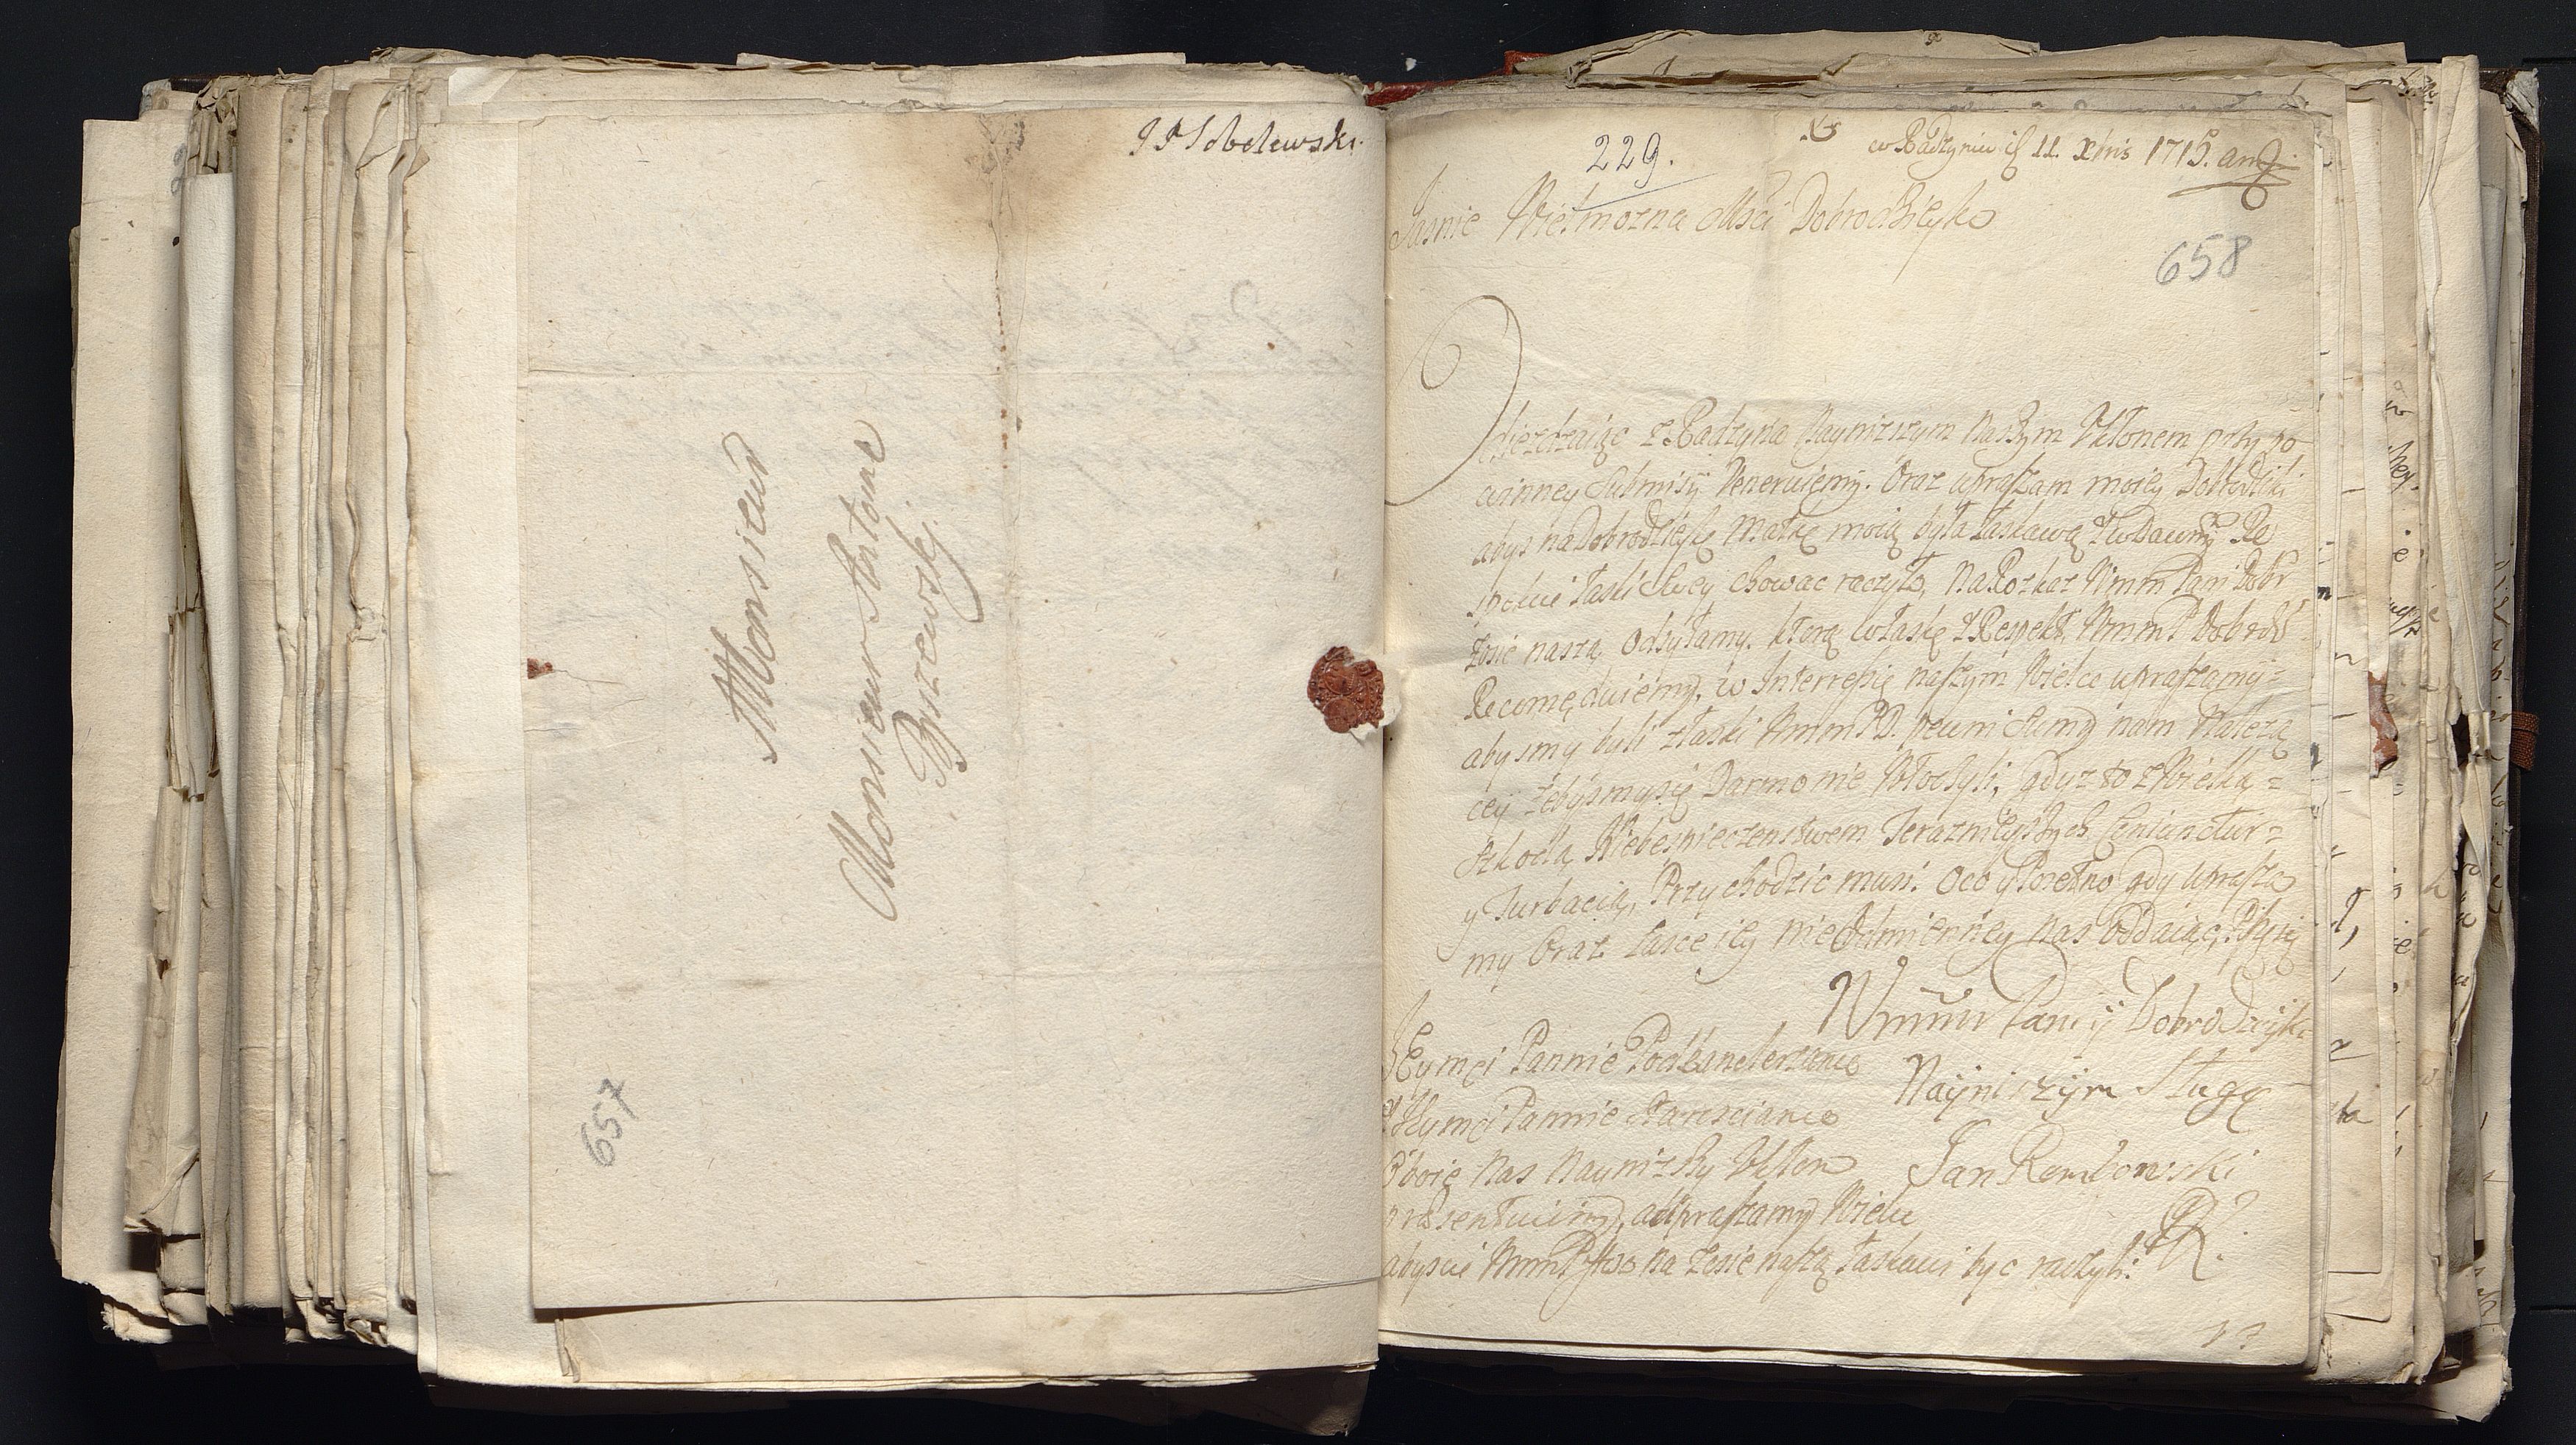 JP Sobolewski.
Monsieur
Monsieur Antoine
Brzezewskj.
657
229.
w Radzyniu 11. Xbris 1715. ang
Jasnie Wielmozna Msci Dobrodzieyko
658
Odiezdzaiąc z Radzyna Naynizszym Naszym Ukłonem przy po
winney Submisij Venerujemy. Oraz upraszam moiey Dobrodziki
abys na Dobrodzieykę Matkę moią była łaskawą w Dawny Re
spekcie łaski Swey chowac raczyła, Na Rozkaz Wmm Pani Dobr
Zosię naszą Odsyłamy. ktorą w łaskę y Respekt WmmP Dobrodz
Recomęduiemy, w Interresie naszym Wielce upraszamy=
abysmy byli z łaski WmmPD. pewni Sumy nam Nalezą
cey żebysmy się Darmo nie Włoczyli, gdyz to z Wielką=
Szkodą Niebespieczenstwem Teraznieyszych Coniunctur=
y Turbacią, Przychodzic musi. Oco y Powtorno gdy uprasza
my Oraz łasce iey nieodmienney nas Oddaiąc, Piszę się
Wmmw Paniij Dobrodzieyki
Nayniszym Sługą
Jan Rembowski
JEymci Pannie Podkanclerzance
y JEymci Pannie Starosciance
Oboie Nas Naynizszy Ukłon
præsentuiemy, a upraszamy Wielce
abyscie WmmP na Zosię naszą łaskawi byc raczyli: